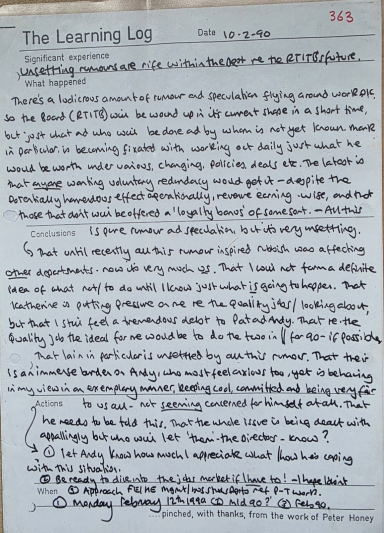 363
The Learning Log Date 10-2-90
Significant experience
Unsettling rumours are rife within the Dept re the RTITB's future.
What happened
There's a ludicrous amount of rumour and speculation flying around work. OK,
so the Board (RTITB) will be wound up in its current shape in a short time,
but just what and who will be done and by whom is not yet known. Mark
in particular is becoming fixated with working out daily just what he
would be worth under various, changing, policies, deals etc. The latest is
that anyone wanting voluntary redundancy would get it - despite the
potentially horrendous effect operationally, revenue earning-wise, and that
those that don't will be offered a 'loyalty bonus' of some sort. - All this
Conclusions is pure rumour and speculation, but it's very unsettling.
That until recently all this rumour inspired rubbish was affecting
other departments - now it's very much us. That I will not form a definite
idea of what not/to do until I know just what is going to happen. That
Katherine is putting pressure on me re the Quality jobs/looking about,
but that I still feel a tremendous debt to Pat and Andy. That re the
Quality job the ideal for me would be to do the two in // for 90 - if possible.
That Iain in particular is unsettled by all this rumour. That there
is an immense burden on Andy, who must feel anxious too, yet is behaving
in my view in an exemplary manner, keeping cool, committed and being very fair
Actions to us all - not seeming concerned for himself at all. That
he needs to be told this. That the whole issue is being dealt with
appallingly but who will let 'them - the Directors - know?
① Let Andy know how much I appreciate what/how he's coping
with this situation.
② Be ready to dive into the jobs market if I have to! - I hope I don't
③ Approach FE/HE mgmt/ poss Industparts ref P-T work.
When ① Monday February 12th 1990 ② Mid 90? ③ Feb 90.
....pinched, with thanks, from the work of Peter Honey